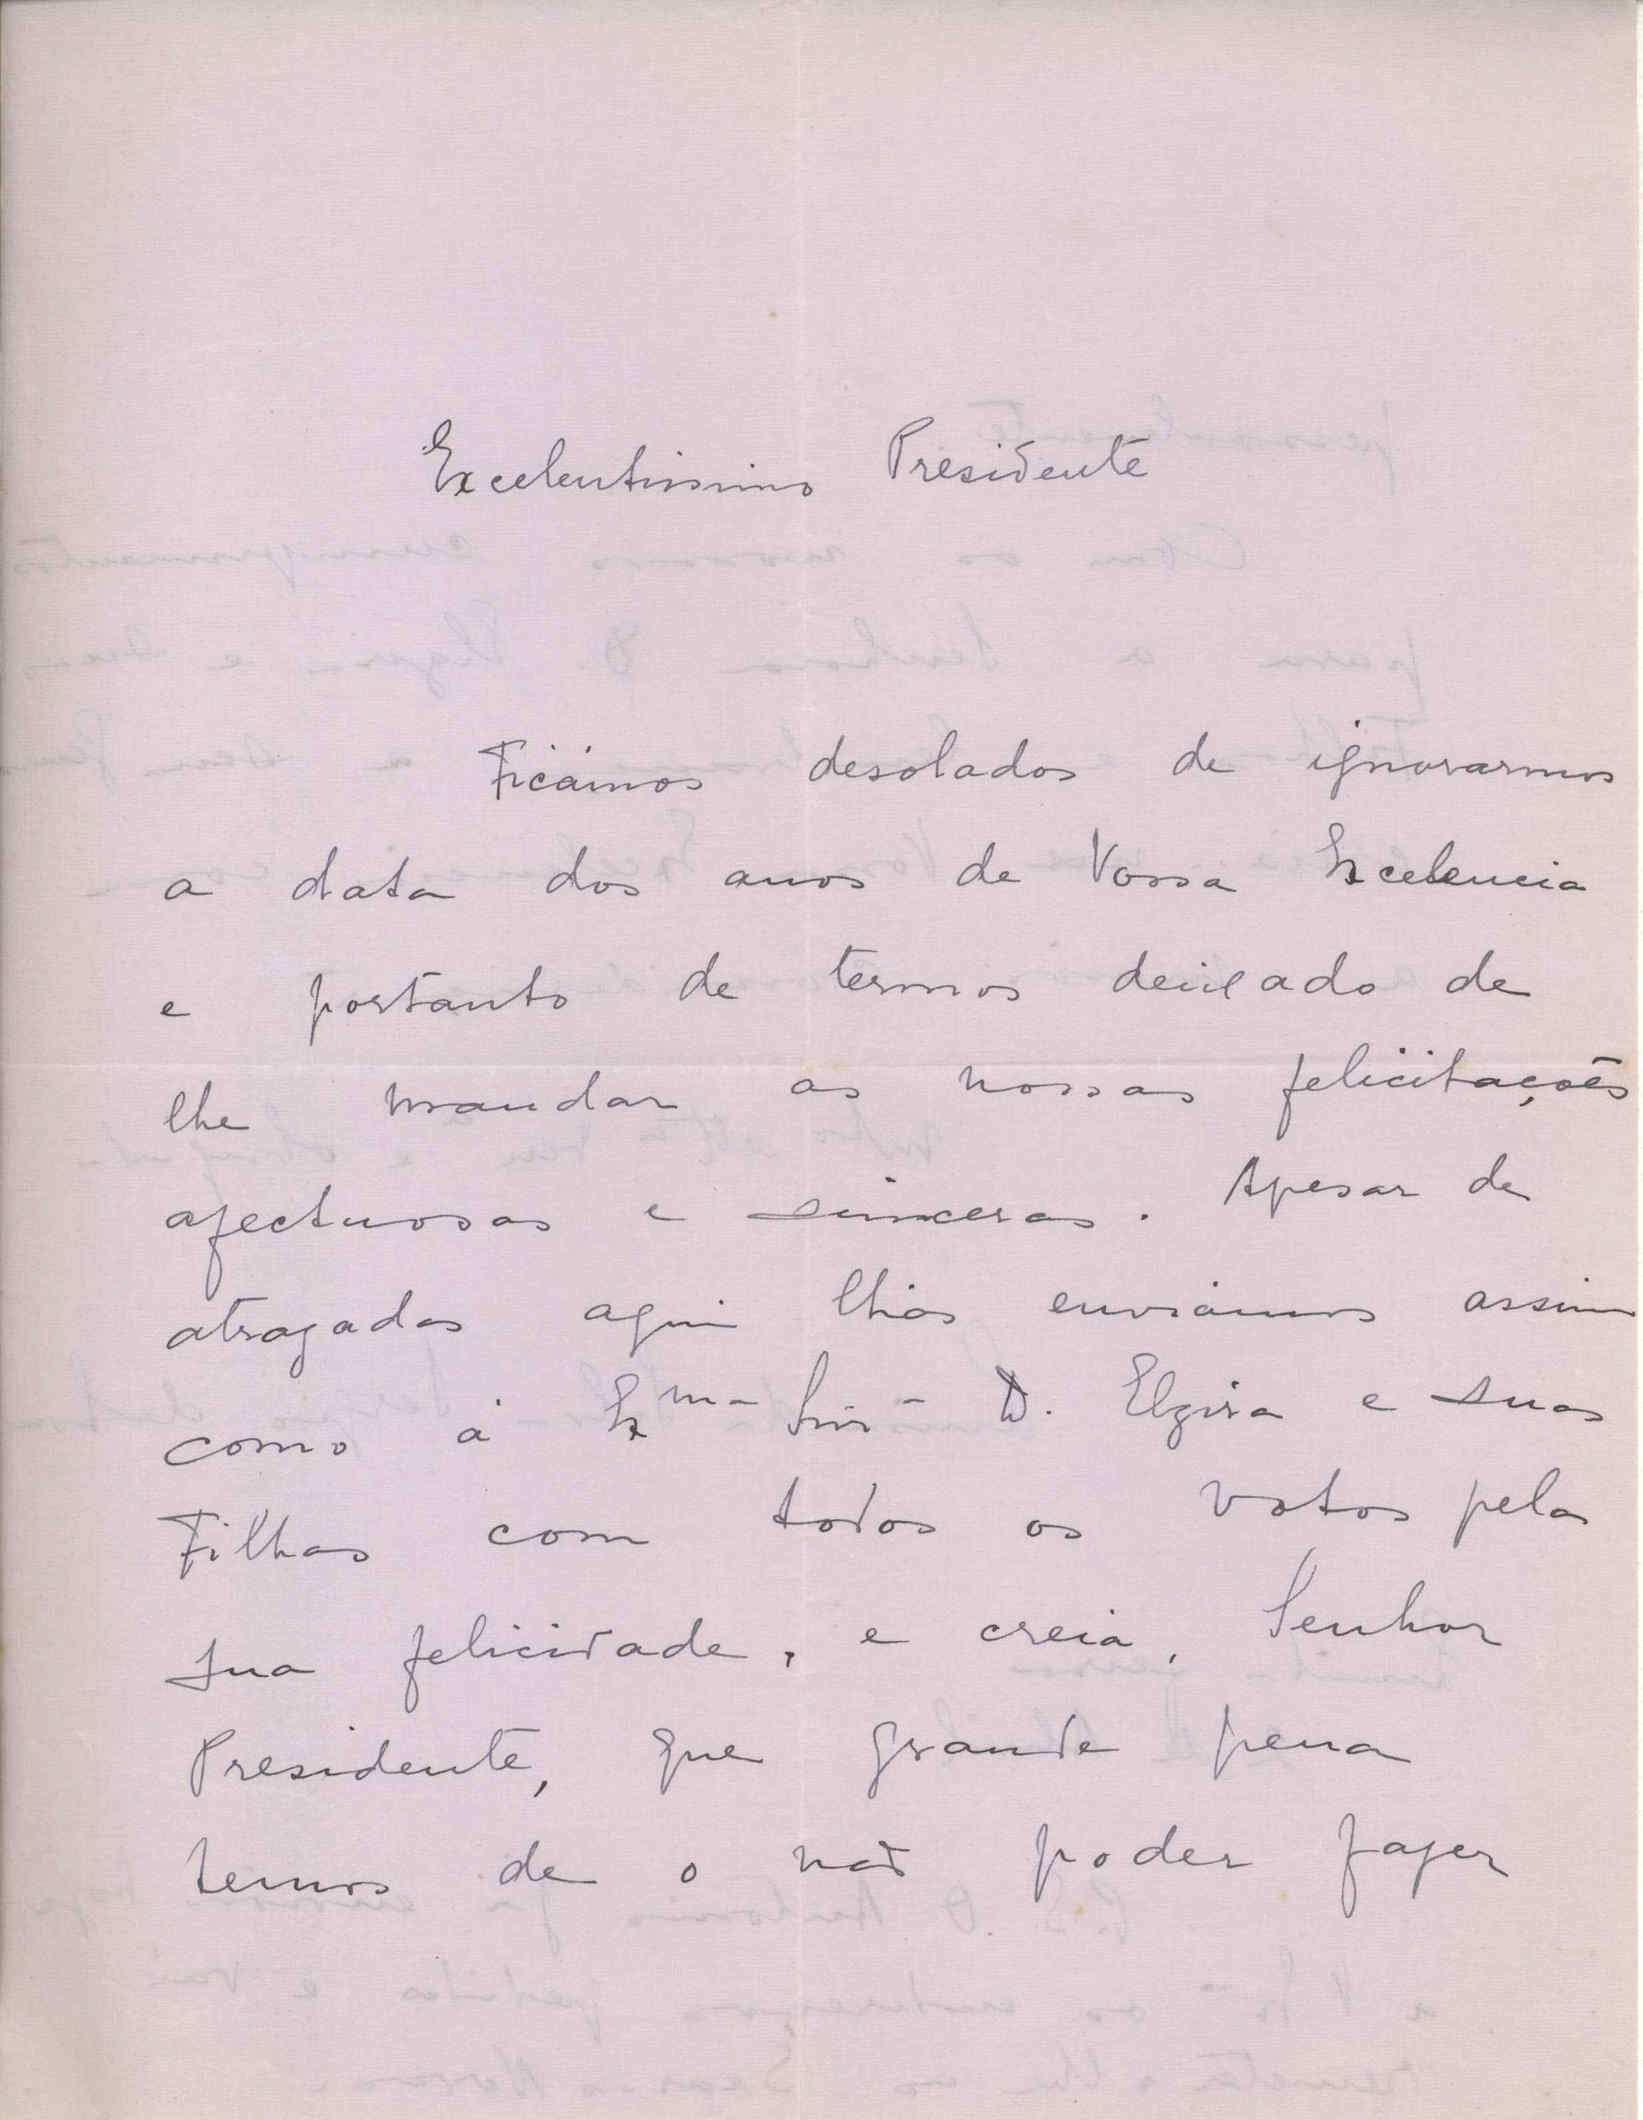 Excelentissimo Presidente
Ficámos desolados de ignorarmos
a data dos anos de Vossa Excelencia
e portanto de termos deixado de
lhe mandar as nossas felicitações
afectuosas e sinceras. Apesar de
atrazadas aqui lhas enviámos assim
como á Ex<sup>ma</sup> Snrª D. Elzira e suas
Filhas com todos os votos pela
sua felicidade, e creia, Senhor
Presidente, que grande pena
temos de o não poder fazer